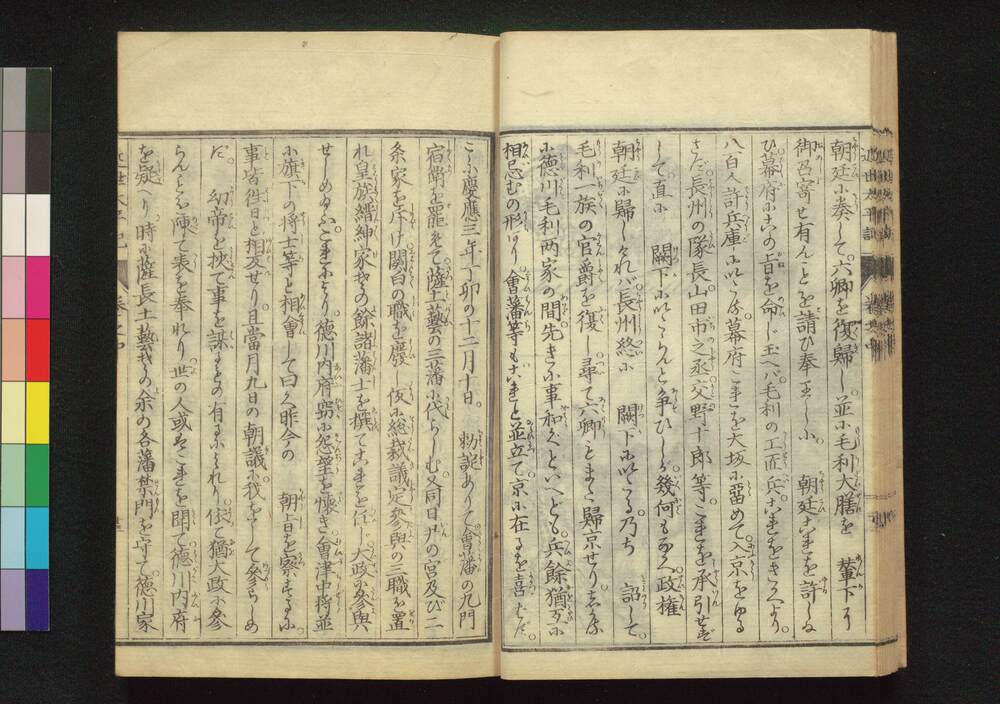 朝廷に奏して。六卿を復歸し。並に毛利大膳を　輦下に
御召寄せ有んことを請ひ奉玉ふに。　朝廷これを許し玉
ひ幕府にこの旨を命じ玉へバ毛利の工匠兵。これをきくより
八百人許兵庫に いたる。幕府これを大坂に留めて。入京をゆる
さず。長州の隊長。山田市之丞。交野十郎等。これを承引せず
して直に　闕下にいたらんと争ひしが。幾何もなく。政権
朝廷に歸しけれバ。長州終に　闕下にいたる。乃ち　詔して。
毛利一族の官爵を復し尋て六卿もまた歸京せり。しかるに
德川毛利両家の間。先きに事和ぐといへども。兵餘猶互に
相忌むの形けり。會藩等もこれと並立て。京に在るを喜ばず。
こゝに慶應三年丁卯の十二月十日。　勅詔ありて。會藩の九門
宿衞を罷免て。薩土藝の三藩に代らしむ。又同日尹の宮及び二
条家を斥け。関白の職を廢　仮に総裁議定參與の三職を置
れ。皇族縉紳家其の餘諸藩士を撰てこれを任じ大政に參與
せしめ玉ふ。これより。德川内府窃に怨望を懐き。會津中将並
に旗下の将士等と相會して曰く昨今の　朝旨を察するに。
事皆徃日と相反せり。且當月九日の朝議に。我をして參らしめ
ず。　幼帝を挾て事を謀ることの有によれり。依て猶大政に參
らんことを陳て表を奉れり。世の人或はこれを聞て。德川内府
を疑へり。時に薩長土藝其の余の各藩禁門を守て。德川家